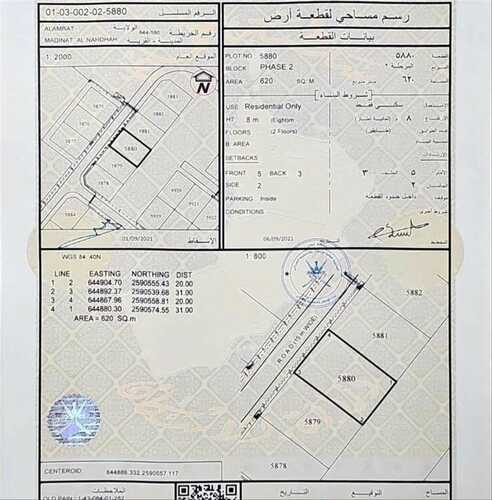 01-03-002-02-5880
الرقم المساحي
رسم مساحي لقطعة أرض
ALAMRAT
الولاية
644-160
رقم الخريطة
بيانات القطعة
MADINAT AL NAHDHAH
المدينة - القرية
1: 2000
الموقع العام
PLOT NO 5880
٥٨٨٠
BLOCK PHASE 2
المرحلة ٢
AREA 620 SQ.M
٦٢٠
متر مربع
شروط البناء
USE Residential Only
سكني فقط
HT 8 m (Eight)m
٨ م
FLOORS (2 Floors)
(طابقين)
B. AREA
SETBACKS
FRONT 5 BACK 3
٥
٣
SIDE 2
٢
PARKING Inside
داخل حدود القطعة
CONDITIONS
شروط أخرى
N
5871
5881
5880
5879
5884
5920
5921
5922
01/09/2021
الإسقاط
06/09/2021
WGS 84 40N
1: 800
LINE EASTING NORTHING DIST
1 2 644904.70 2590555.43 20.00
2 3 644892.37 2590539.68 31.00
3 4 644867.96 2590558.81 20.00
4 1 644880.30 2590574.55 31.00
AREA = 620 SQ.m
ROAD (15 m.WIDE)
5882
5881
5880
5879
5878
CENTEROID 644886.332,2590557.117
الملاحظات
التاريخ
التوقيع
المساح